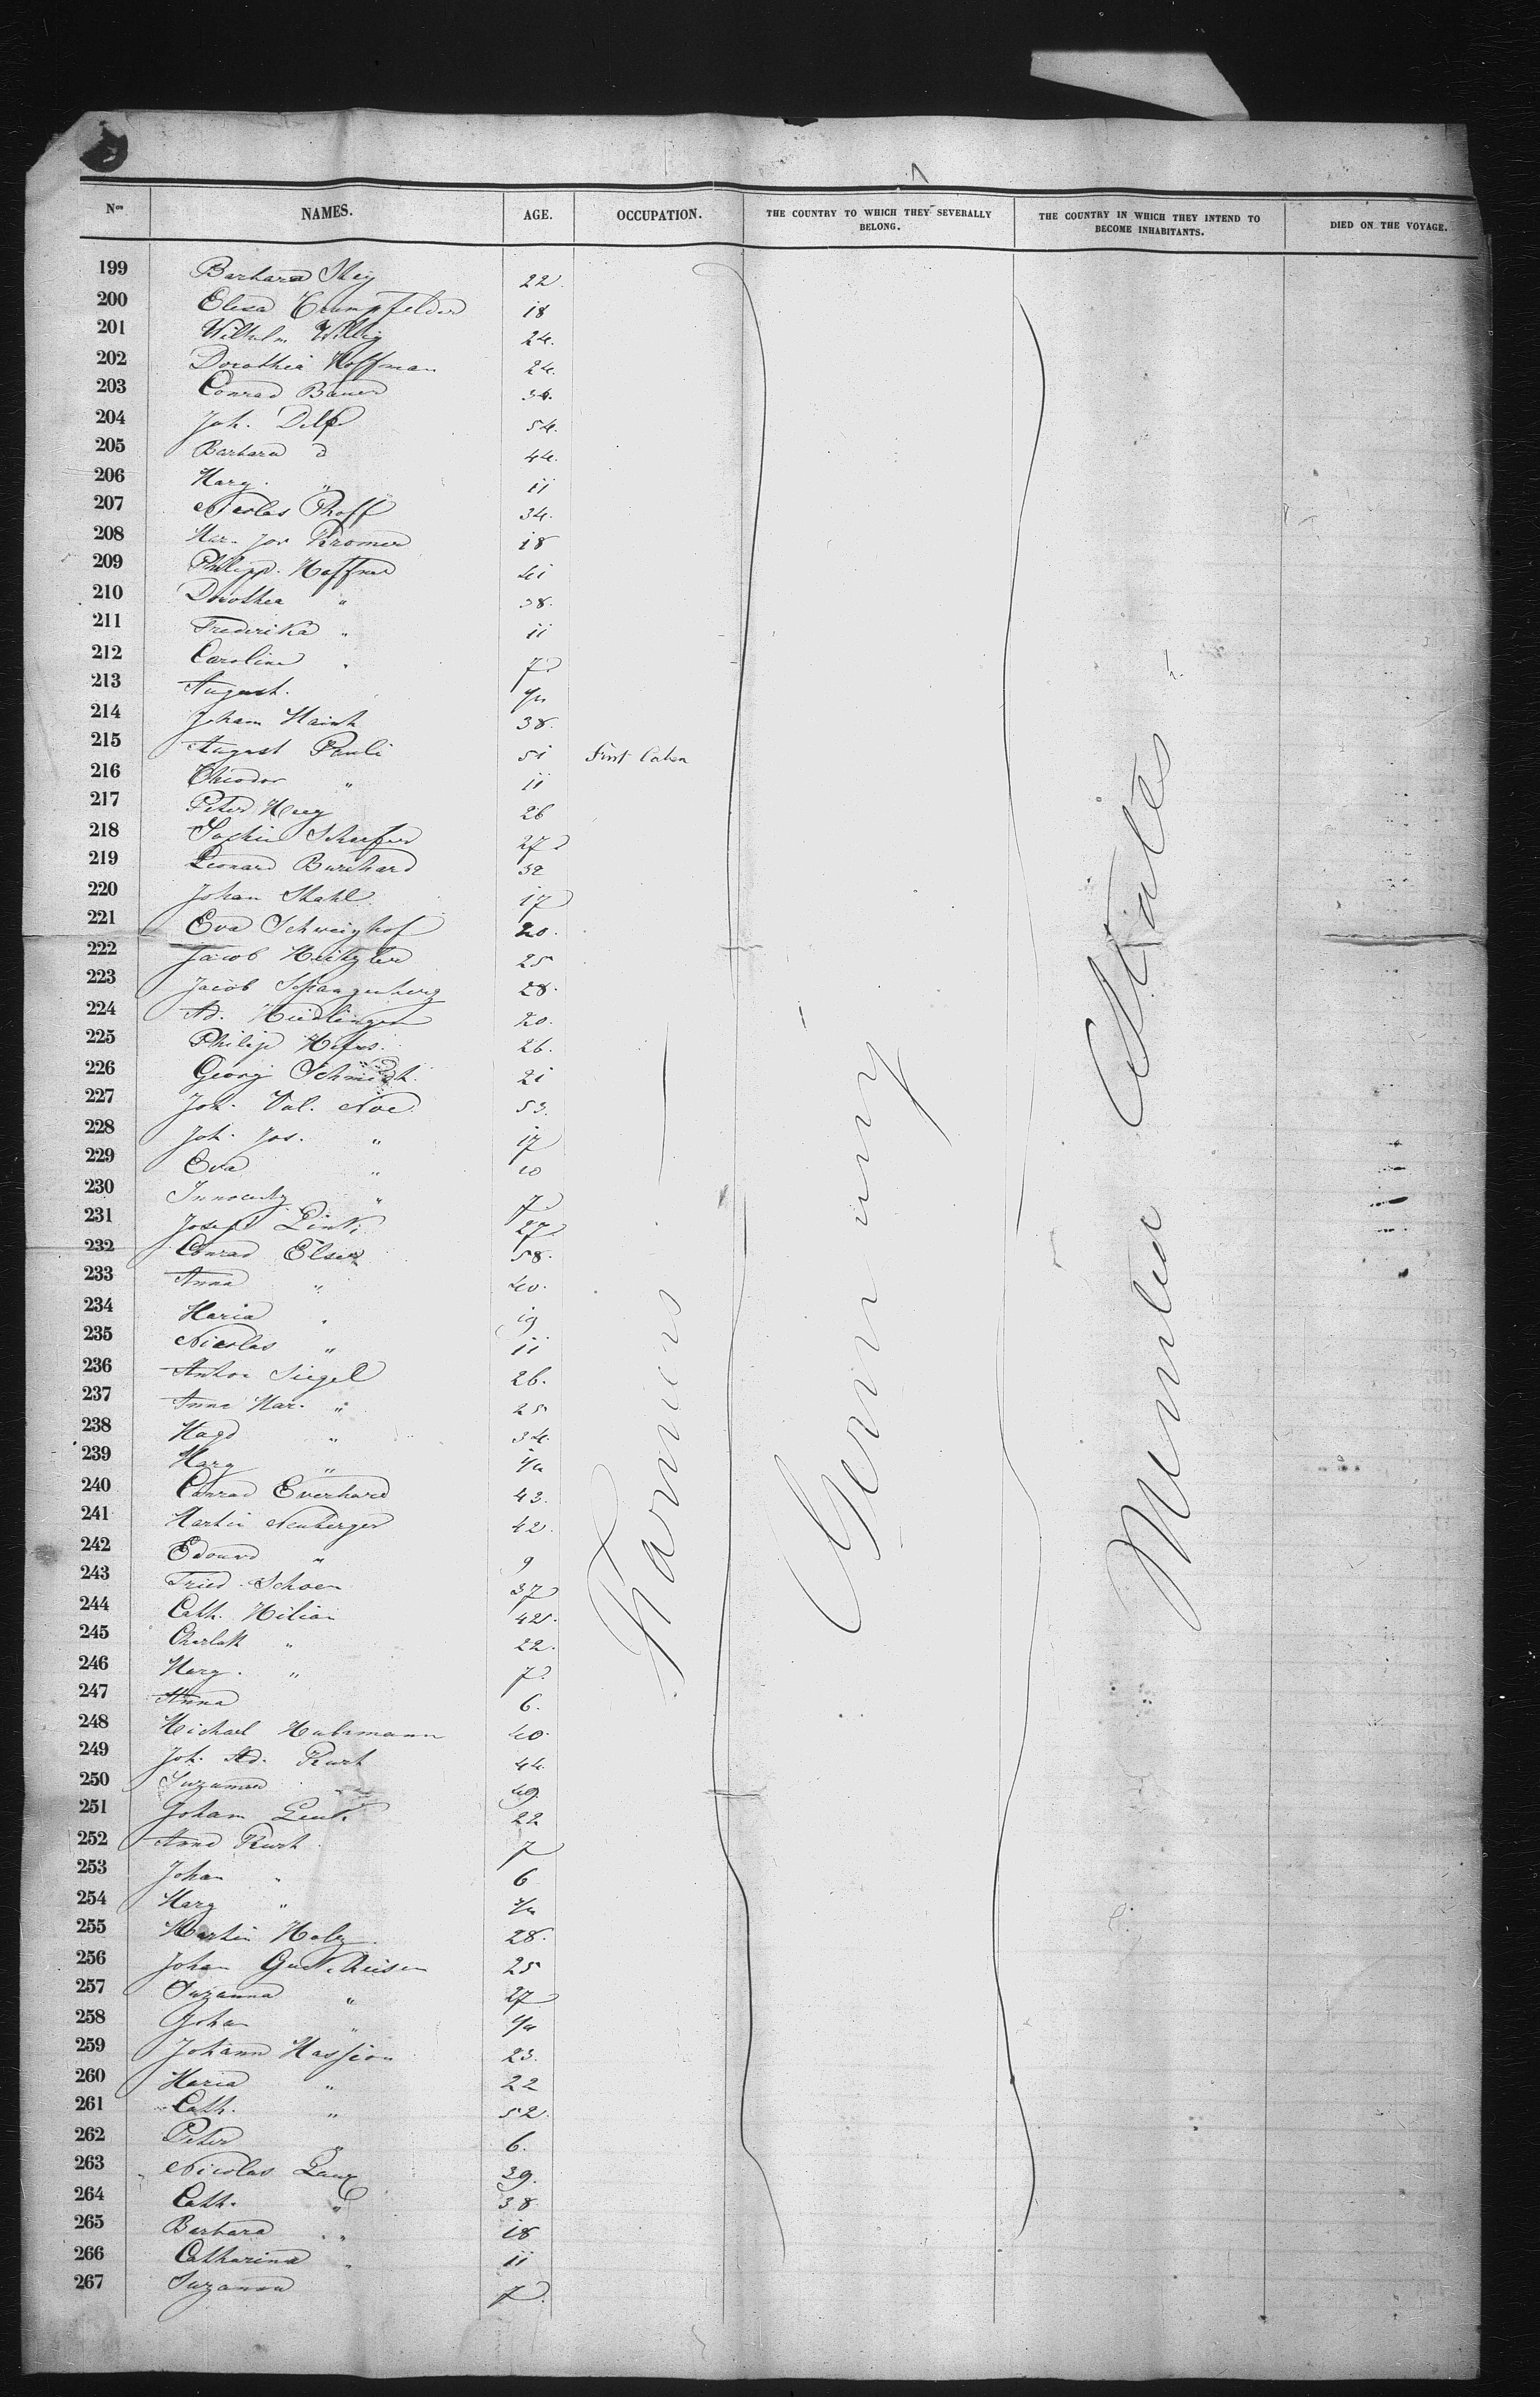 Nos NAMES. AGE. OCCUPATION. THE COUNTRY TO WHICH THEY SEVERALLY BELONG. THE COUNTRY IN WHICH THEY INTEND TO BECOME INHABITANTS. DIED ON THE VOYAGE.
199 Barbara 22.
200 Elisa 18
201 Wilhelm Willig 24.
202 Dorothea Hoffman 24.
203 Conrad Bauer 34.
204 Joh. Delp 54.
205 Barbara d 44.
206 Marg. " 11
207 Nicolas Phoff 34.
208 Mar. Jos Kromer 18
209 Philipp. Haffner 41
210 Dorothea " 38.
211 Frederika " 11
212 Caroline " 7
213 August.
214 Joham 38.
215 August Pauli 51 First Cabin
216 Theodor " 11
217 Peter 26
218 Schaefer 27
219 Leonard Burchard 32
220 Johan Stahl 17
221 Eva Schweighof 20.
222 Jacob 25
223 Jacob Spangenberg 28.
224 Ad. 20.
225 Philip 26.
226 Georg Schmidt 21
227 Joh. Val. Noe 53.
228 Joh. Jos. " 17
229 Eva " 10
230 " 7
231 Joseph Link 27
232 Conrad Elser 58.
233 Anna " 40.
234 Maria " 19
235 Nicolas " 11
236 Anton Siegel 26.
237 Anna Mar. " 25
238 Magd " 34.
239 Marg "
240 Conrad Everhard 43.
241 Martin Neuberger 42.
242 Edouard " 9
243 Fried. Schoen 37
244 Cath. Kilian 42.
245 " 22.
246 Marg. " 7.
247 Anna 6.
248 Michael 40.
249 Joh. Ad. 44
250 Suzanna 49.
251 Joham 22
252 Anna 7
253 Johan " 6
254 Marg "
255 Martin 28.
256 Johan 25
257 Suzanna " 27
258 Johan "
259 Johann Massion 23.
260 Maria " 22
261 Cath. " 52.
262 Peter " 6.
263 Nicolas Laux 39.
264 Cath. " 38
265 Barbara " 18
266 Catharina " 11
267 Suzanna 7.
Farmers
Germany
United States